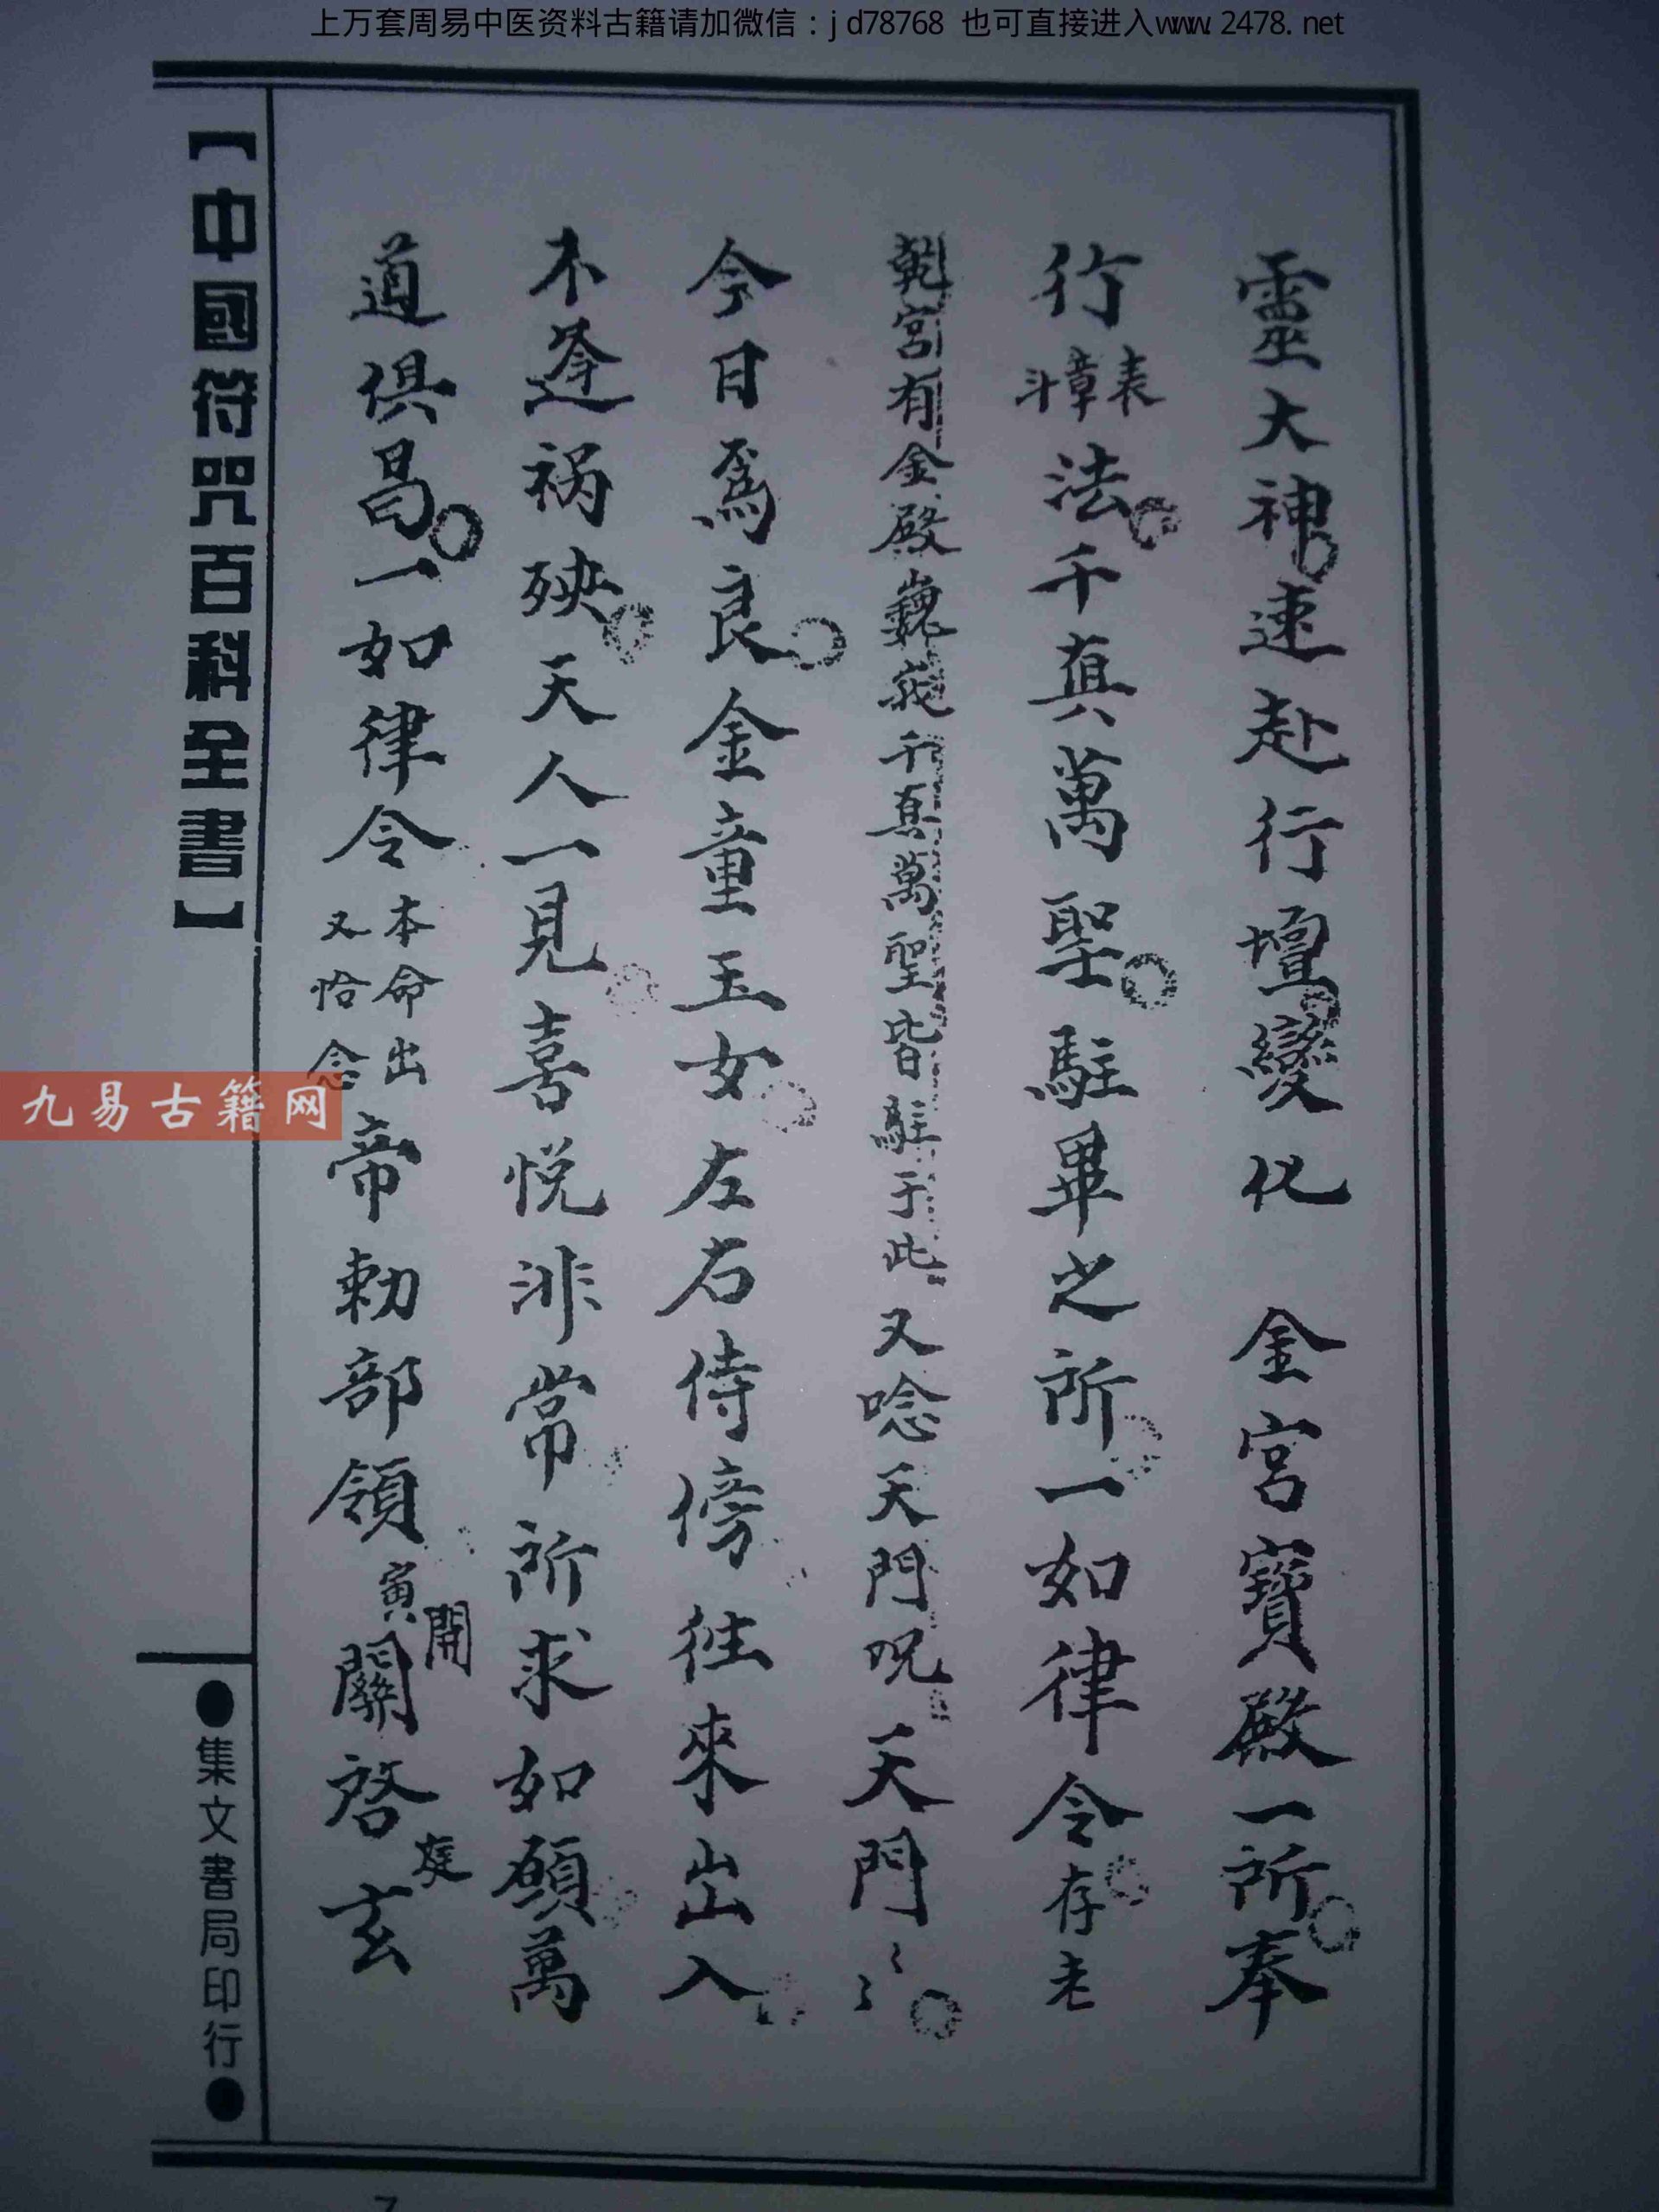 上万套周易中医资料古籍请加微信：jd78768 也可直接进入www.2478.net
靈大神速赴行壇變化 金宮寶殿一所奉
行表章斗法千真萬聖駐畢之所一如律令存老
乾宮有金殿巍峩千真萬聖皆駐于此又唸天門呪天門〻〻
今日爲良金童玉女左右侍傍往來出入
不逢祸殃天人一見喜悦非常所求如願萬
道俱昌一如律令本命出又恰念帝勅部領寅開關啓庭玄
【中國符咒百科全書】
●集文書局印行●
九易古籍网